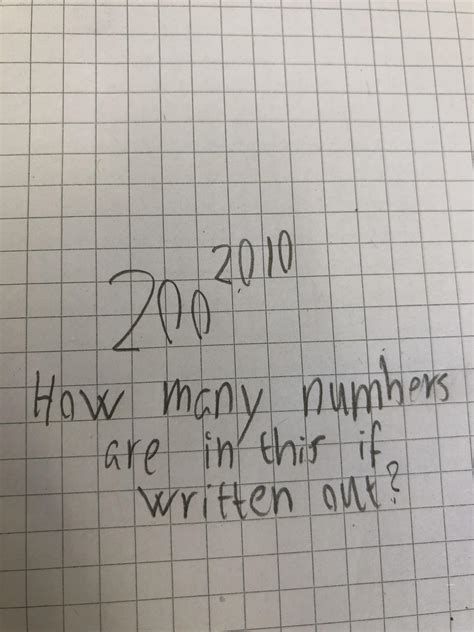 200^2010
How many numbers
are in this if
written out?